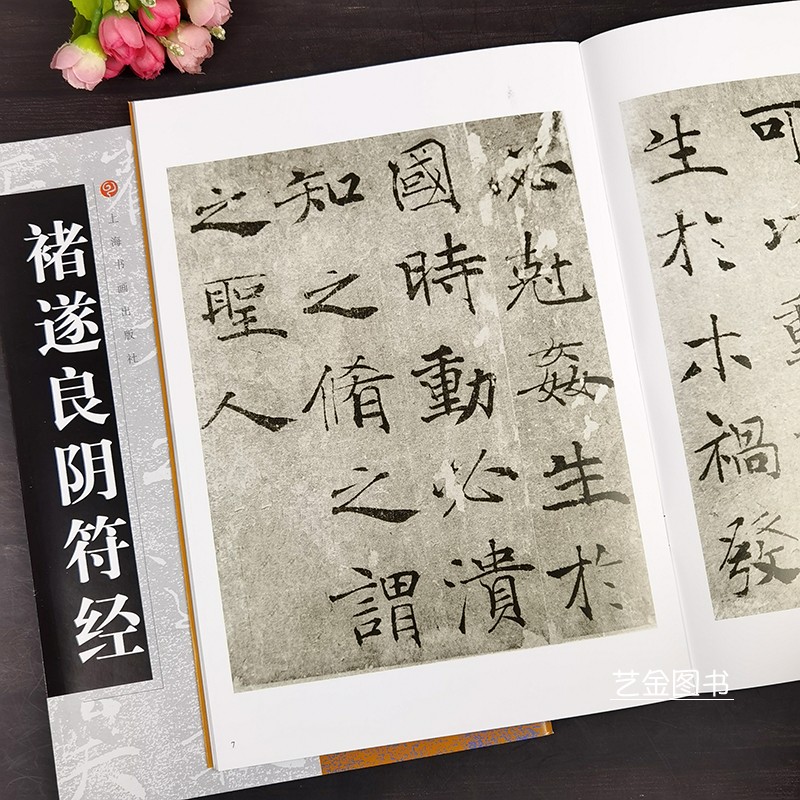 褚遂良阴符经
上海书画出版社
生於木禍發
必尅姦生於
國時動必潰
知之脩之謂
之聖人
7
艺金图书